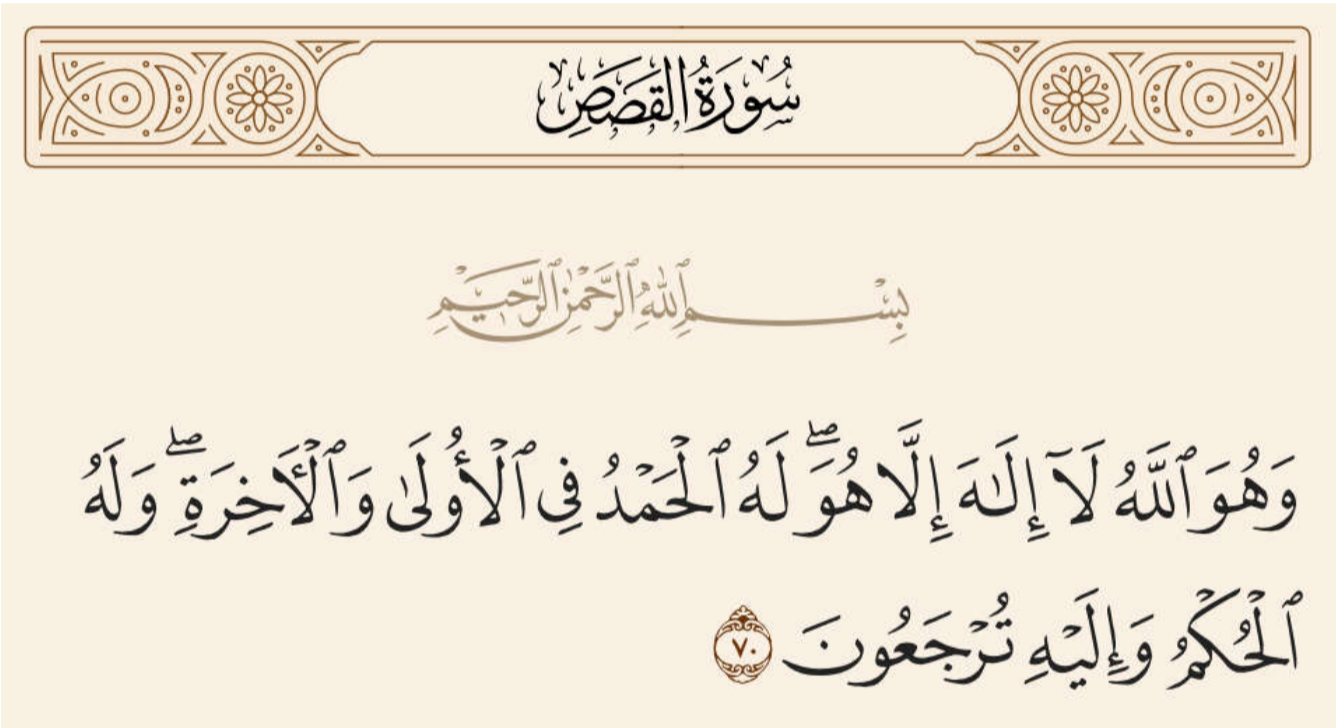 سُورَةُ القَصَصِ
بِسْمِ ٱللَّهِ ٱلرَّحْمَٰنِ ٱلرَّحِيمِ
وَهُوَ ٱللَّهُ لَآ إِلَٰهَ إِلَّا هُوَۖ لَهُ ٱلْحَمْدُ فِي ٱلْأُولَىٰ وَٱلْأَخِرَةِۖ وَلَهُ
ٱلْحُكْمُ وَإِلَيْهِ تُرْجَعُونَ ٧٠